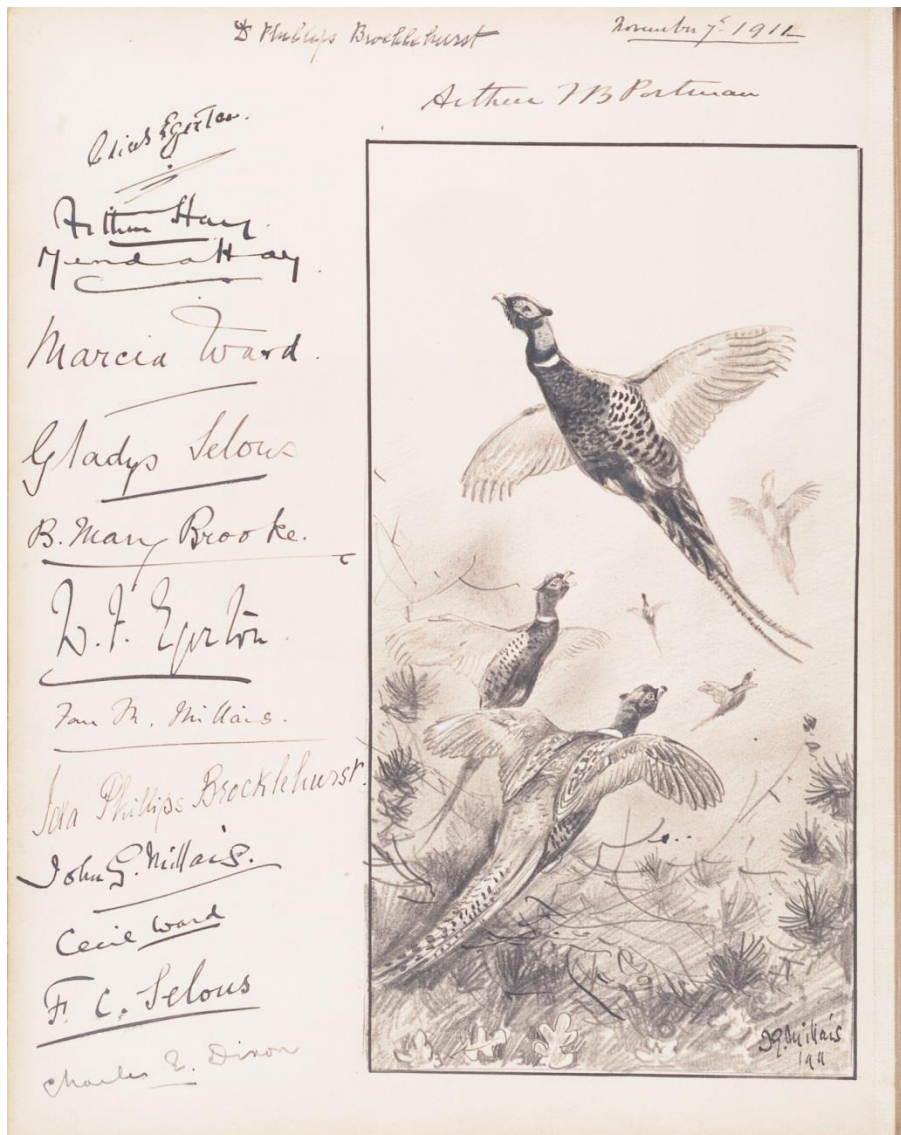 Phillips Brocklehurst
November 7th 1911
Arthur B Portman
Egerton.
Arthur Hay.
Hay.
Marcia Ward.
Gladys Selous
B. Mary Brooke.
W. F. Egerton.
M. Millais.
Phillips Brocklehurst.
John G. Millais.
Cecil Ward
F. C. Selous
Charles E. Dixon
J G Millais
1911